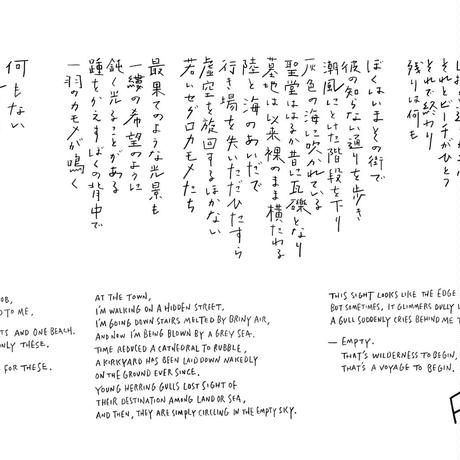 それとビーチがひとつ
それで終わり
残りは何も
ぼくはいまその街で
彼の知らない通りを歩き
潮風にとけた階段を下り
灰色の海に吹かれている
聖堂ははるか昔に瓦礫となり
墓地は以来裸のまま横たわる
陸と海のあいだで
行き場を失いただひたすら
虚空を旋回するほかない
若いセグロカモメたち
最果てのような光景も
一縷の希望のように
鈍く光ることがある
踵をかえすぼくの背中で
一羽のカモメが鳴く
何もない
OB,
D TO ME,
TS AND ONE BEACH.
ONLY THESE.
FOR THESE.
AT THE TOWN,
I'M WALKING ON A HIDDEN STREET.
I'M GOING DOWN STAIRS MELTED BY BRINY AIR,
AND NOW I'M BEING BLOWN BY A GREY SEA.
TIME REDUCED A CATHEDRAL TO RUBBLE,
A KIRKYARD HAS BEEN LAID DOWN NAKEDLY
ON THE GROUND EVER SINCE.
YOUNG HERRING GULLS LOST SIGHT OF
THEIR DESTINATION AMONG LAND OR SEA,
AND THEN, THEY ARE SIMPLY CIRCLING IN THE EMPTY SKY.
THIS SIGHT LOOKS LIKE THE EDGE
BUT SOMETIMES, IT GLIMMERS DULLY L
A GULL SUDDENLY CRIES BEHIND ME T
— EMPTY.
THAT'S WILDERNESS TO BEGIN,
THAT'S A VOYAGE TO BEGIN.